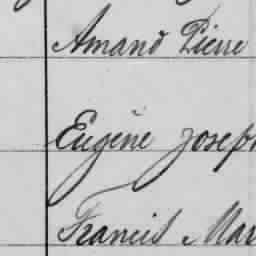 Amand Pierre
Eugène Joseph
Francis Mar